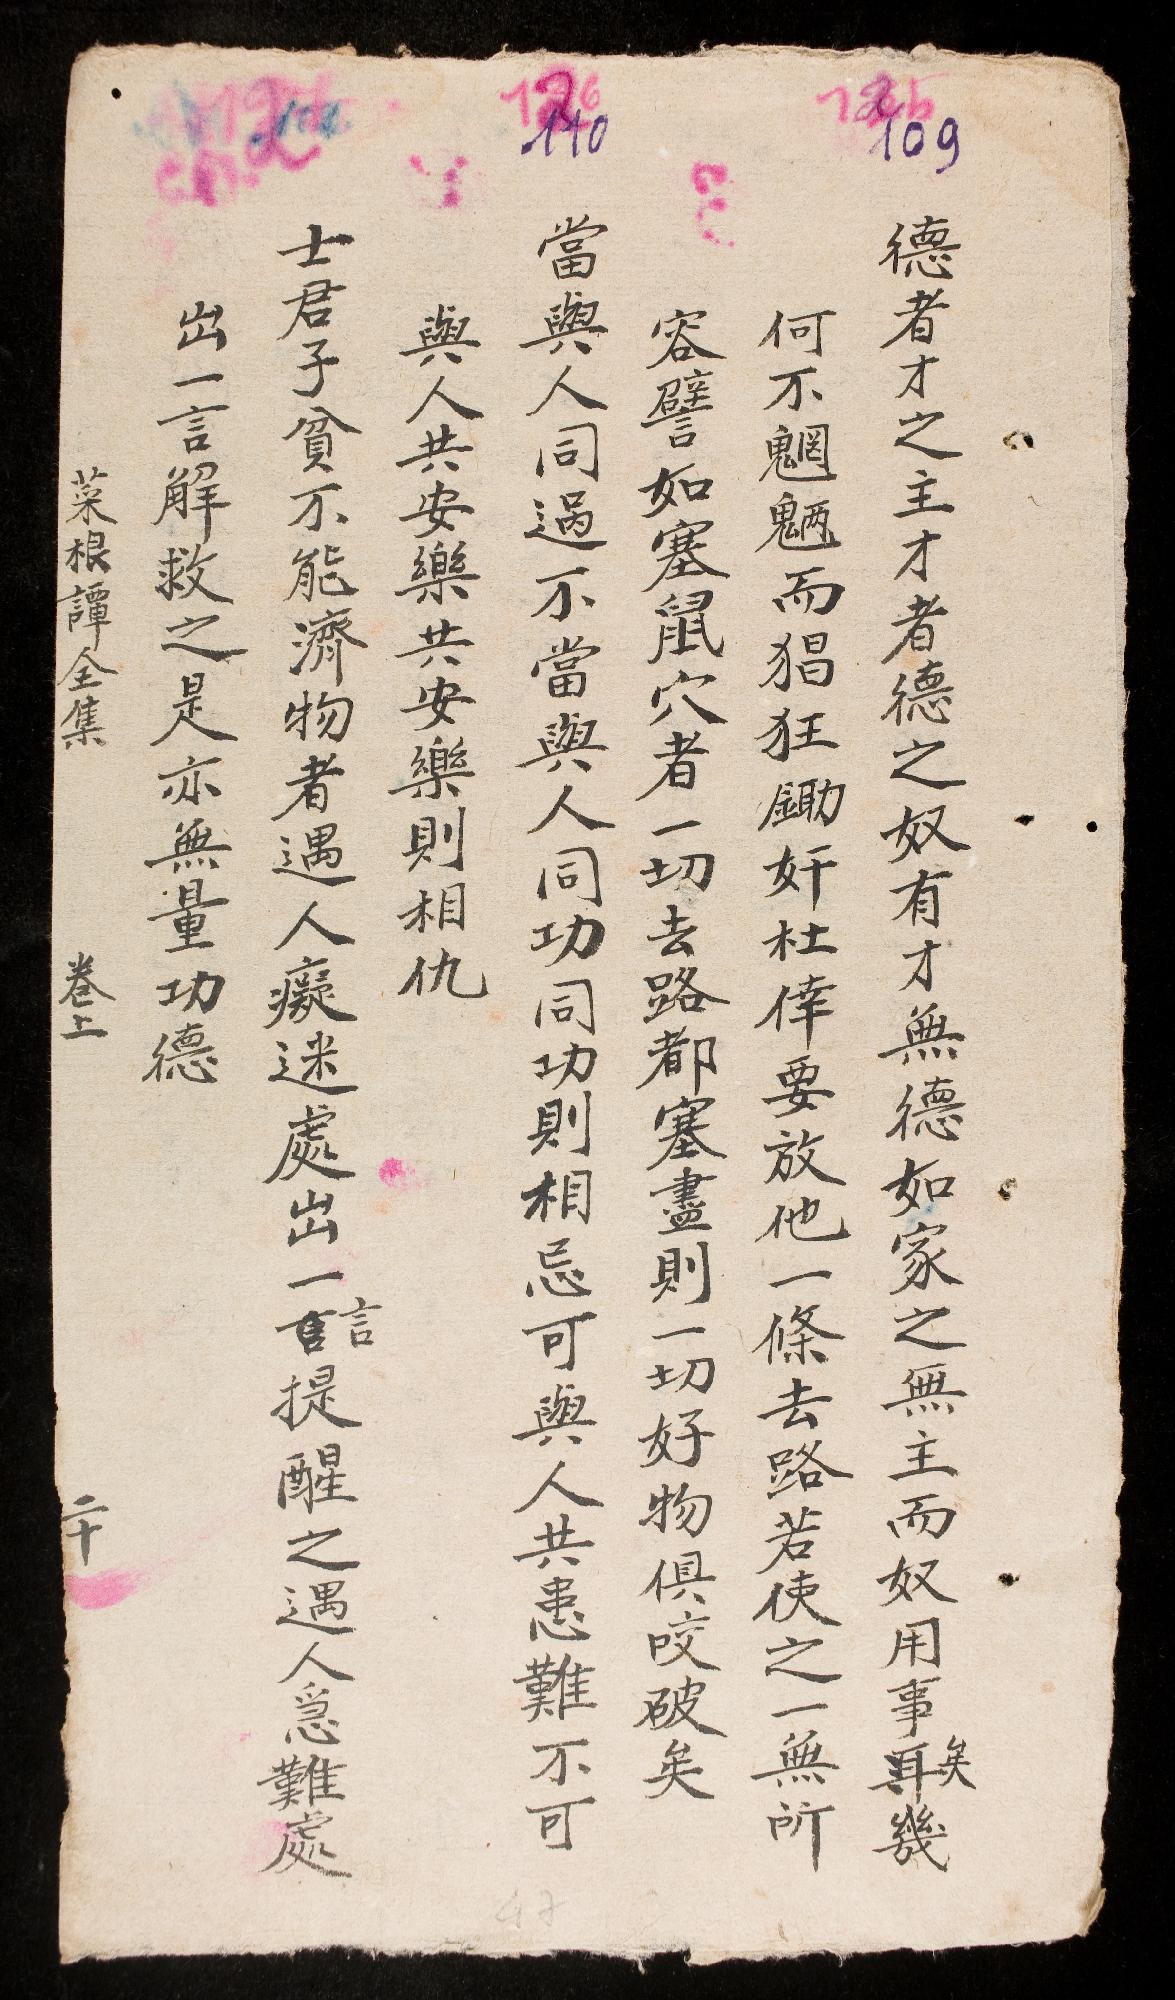 109
德者才之主才者德之奴有才無德如家之無主而奴用事耳矣幾
何不魍魎而猖狂鋤奸杜倖要放他一條去路若使之一無所
容譬如塞鼠穴者一切去路都塞盡則一切好物俱咬破矣
110
當與人同過不當與人同功同功則相忌可與人共患難不可
與人共安樂共安樂則相仇
士君子貧不能濟物者遇人癡迷處出一言提醒之遇人急難處
出一言解救之是亦無量功德
菜根譚全集 卷上 二十